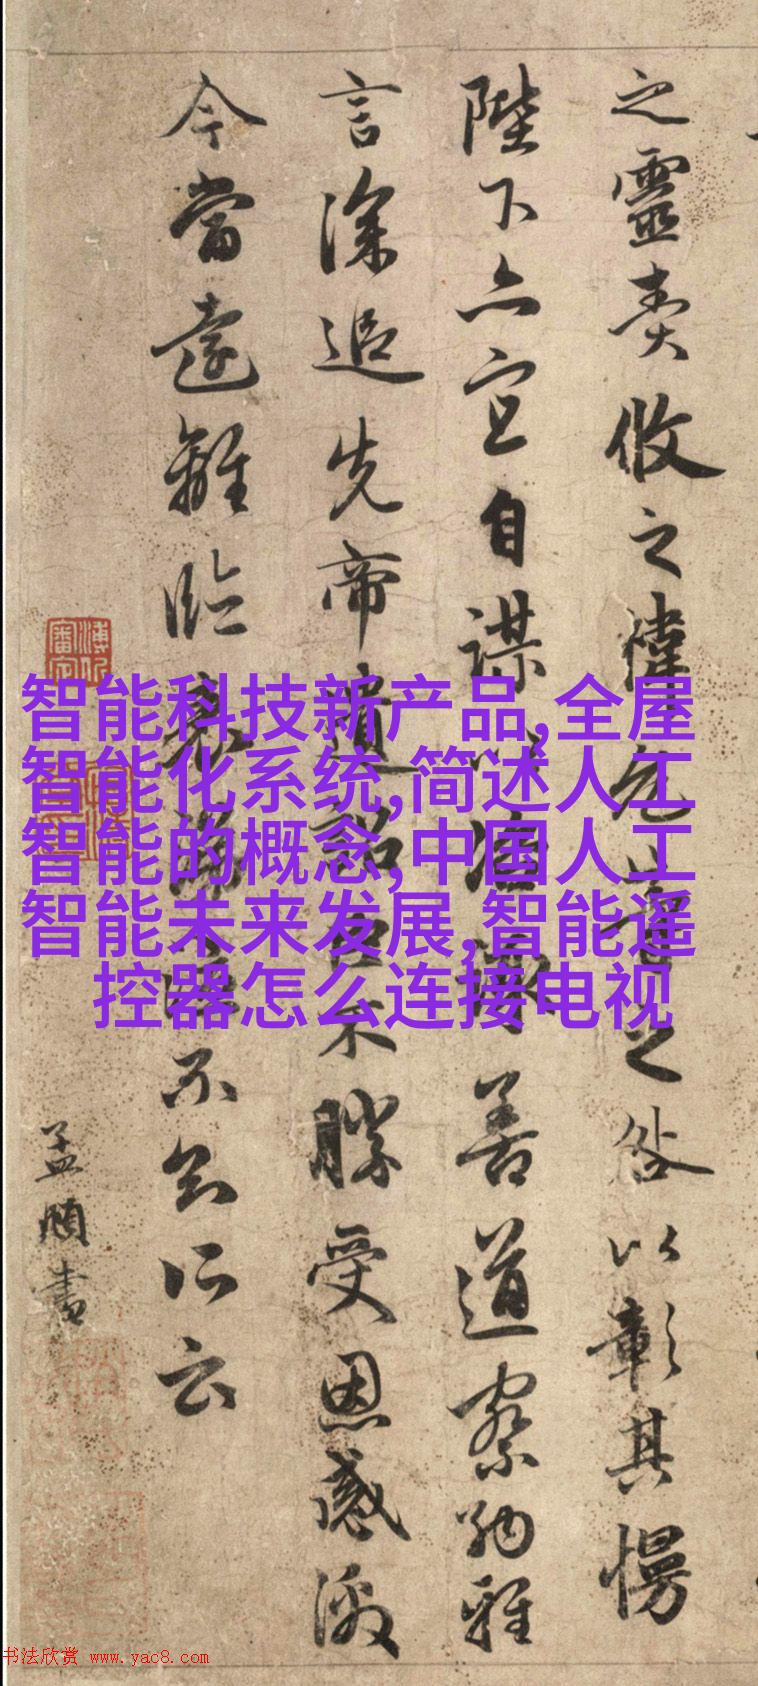 之靈責攸之禕允等之咎以彰其慢
陛下亦宜自謀以諮諏善道察納雅
言深追先帝遺詔臣不勝受恩感激
今當遠離臨表不知所云
孟頫書
智能科技新产品,全屋
智能化系统,简述人工
智能的概念,中国人工
智能未来发展,智能遥
控器怎么连接电视
书法欣赏 www.yac8.com